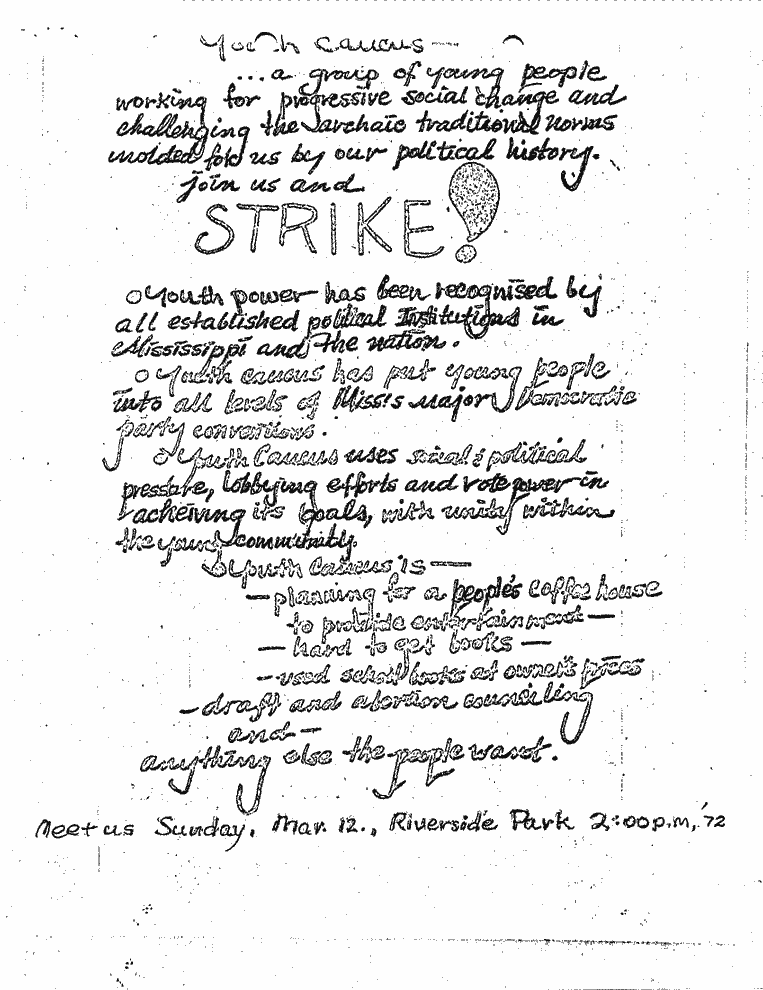 Youth Caucus —
... a group of young people
working for progressive social change and
challenging the archaic traditional norms
molded for us by our political history.
join us and
STRIKE!
o Youth power has been recognised by
all established political Institutions in
Mississippi and the nation.
o Youth caucus has put young people
into all levels of Miss's major Democratic
party conventions.
o Youth Caucus uses social & political
pressure, lobbying efforts and vote power in
acheiving its goals, with unity within
the young community.
o Youth Caucus is —
— planning for a people's coffee house
to provide entertainment —
— hard to get books —
— used school books at owner's prices
— draft and abortion counciling
and —
anything else the people want.
Meet us Sunday, Mar. 12., Riverside Park 2:00 p.m, '72